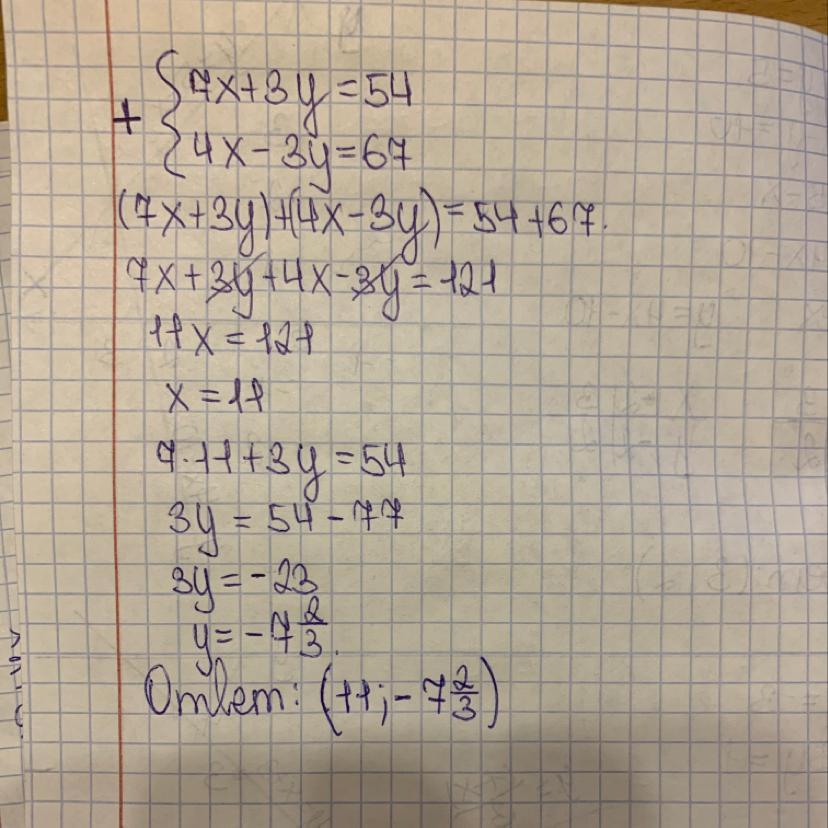 + { 7x+3y=54
4x-3y=67
(7x+3y)+(4x-3y)=54+67.
7x+3y+4x-3y=121
11x=121
x=11
7·11+3y=54
3y=54-77
3y=-23
y=-7 2/3.
Ответ: (11; -7 2/3)